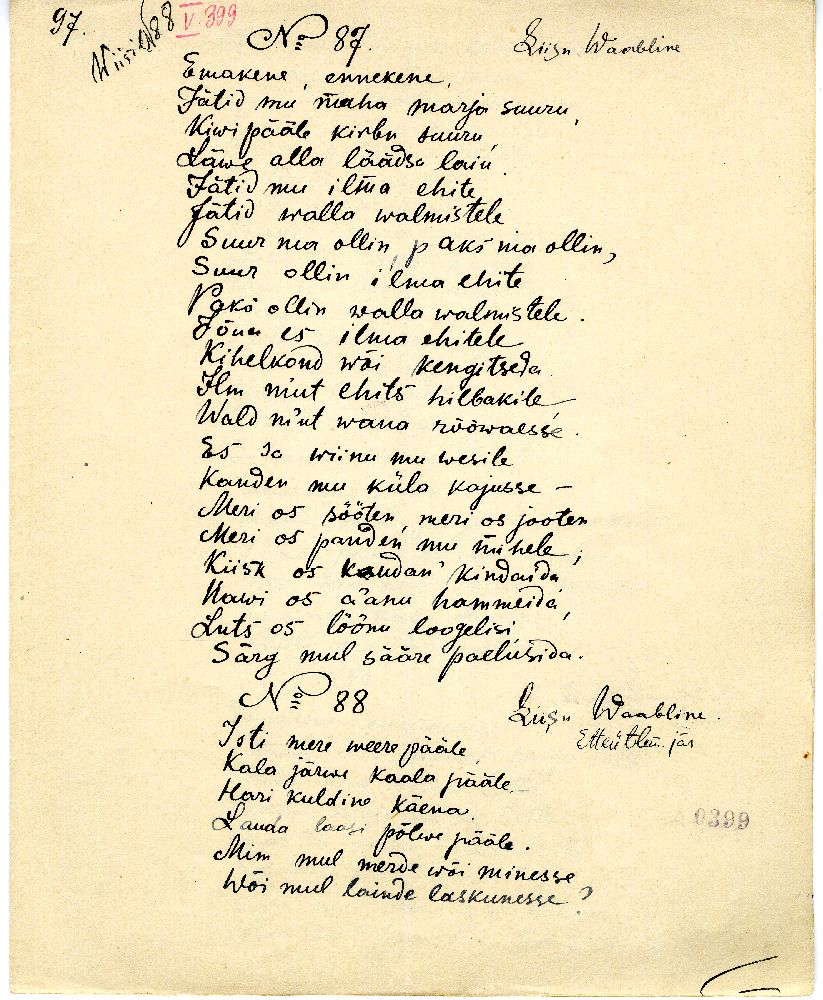 97.
Wiisid 88
V. 399
No 87.
Liisu Waabline
Emakene, ennekene,
Jätid mu maha marja suuru,
Kiwi pääle kirbu suuru,
Läwe alla läädsa laiu.
Jätid mu ilma ehite,
Jätid walla walmistele
Suur ma ollin, paks ma ollin,
Suur ollin ilma ehite
Paks ollin walla walmistele.
Jõua es ilma ehitele
Kihelkond wõi kengitseda.
Ilm mut ehits hilbakile
Wald mut wana rööwaesse.
Es sa wiinu mu wesile
Kanden mu küla kajusse –
Meri os sööten, meri os jooten
Meri os panden mu mihele,
Kiisk os kaudan kindaida
Hawi os a'anu hammeida,
Luts os löönu loogelisi
Särg mul sääre paelusida.
No 88
Liisu Waabline.
Etteütlem. jär
Isti mere weere pääle,
Kala järwe kaala pääle
Hari kuldine käena.
Lauda laasi põlwe pääle.
Mim mul merde wõi minesse
Wõi mul lainde laskunesse?
0399